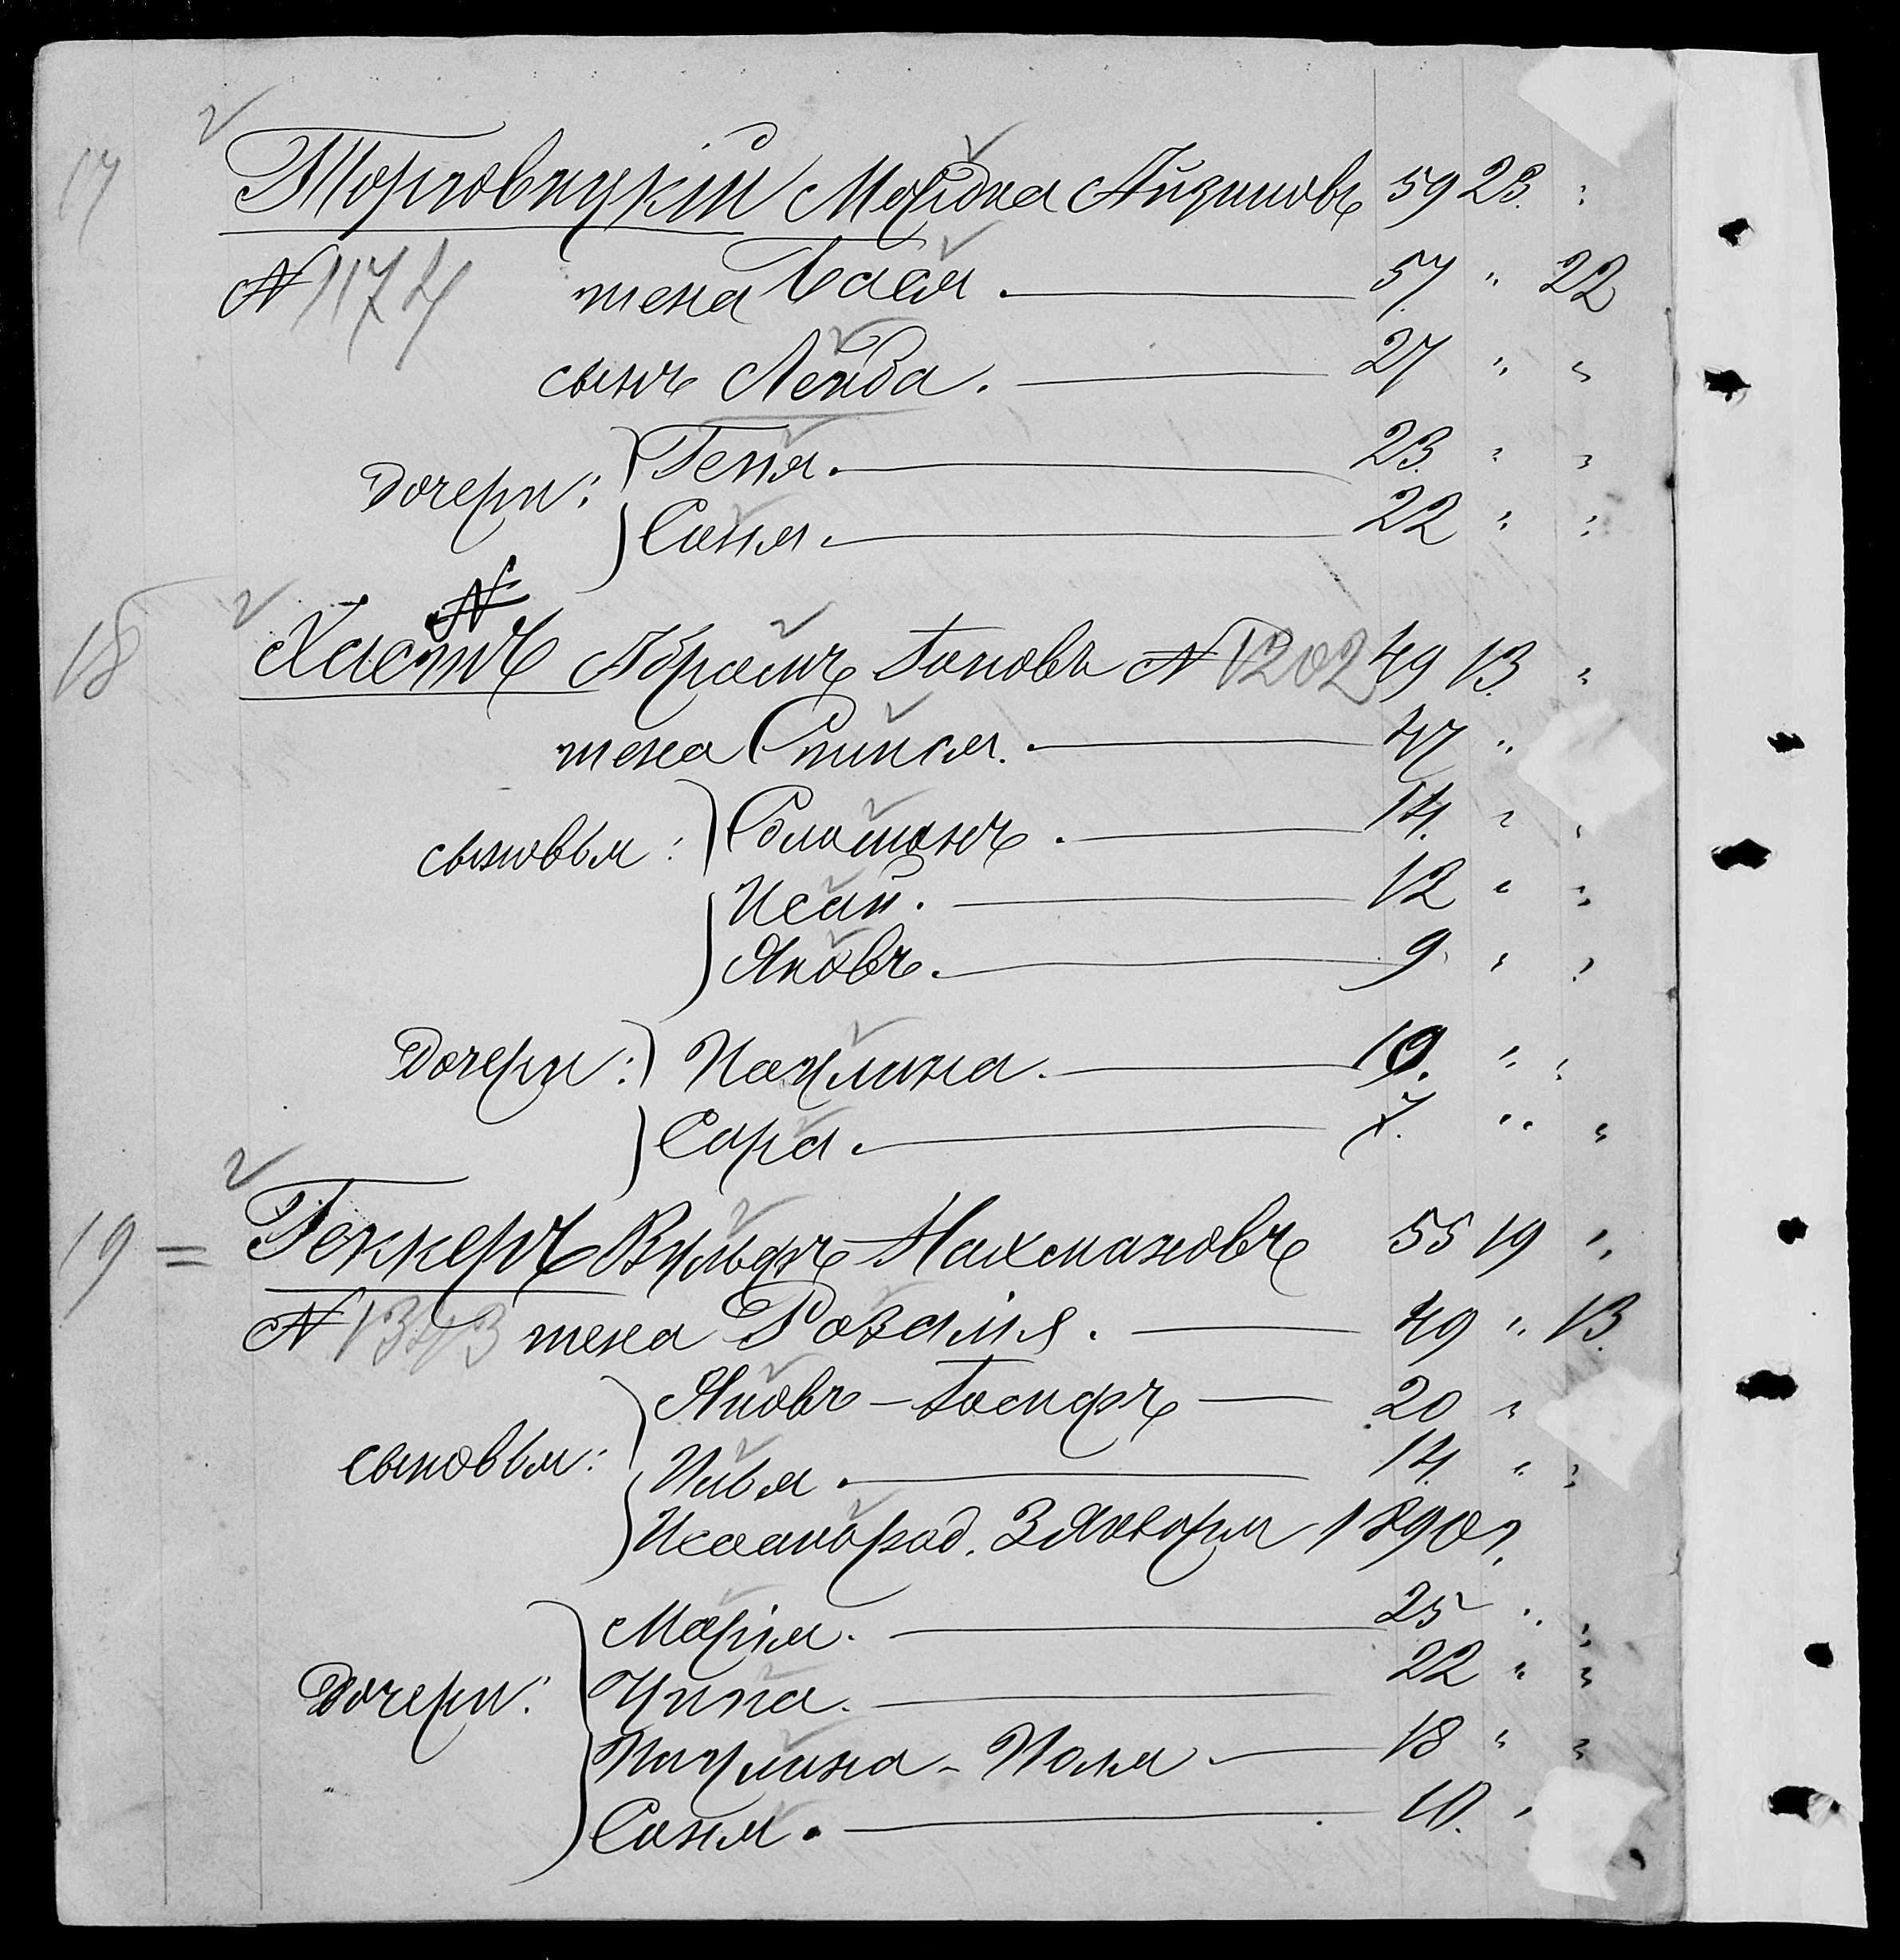 17 Торговицкій Мордка Айзиковъ 59 23. "
№ 1174 жена Бася. 57 " 22
сынъ Лейба. 27 " "
дочери: Геня. 23. " "
Соня. 22 " "
№
18 Хастъ Абрамъ Іоновъ № 1202 49 13. "
жена Спинся. 47 "
сыновья: Соломонъ. 14. " "
Исай. 12 " "
Яковъ. 9 " "
Дочери: Паулина. 19. " "
Сара. 7. " "
19 = Геккеръ Вульфъ Нахмановъ 55 19 "
№ 1343 жена Розалія. 49 " 13.
Яковъ-Іосифъ 20 "
сыновья: Илья. 14. " "
Исаакъ род. 3 Января 1890 г.
Марія. 25 " "
Дочери: Ципа. 22 " "
Паулина-Поля 18 " "
Соня. 10. "